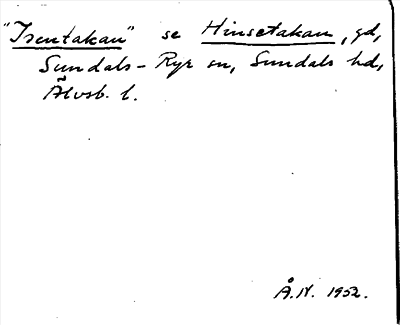 "Isentakan" se Hinsetakan, gd,
Sundals-Ryr sn, Sundals hd,
Älvsb. l.
Å.N. 1952.